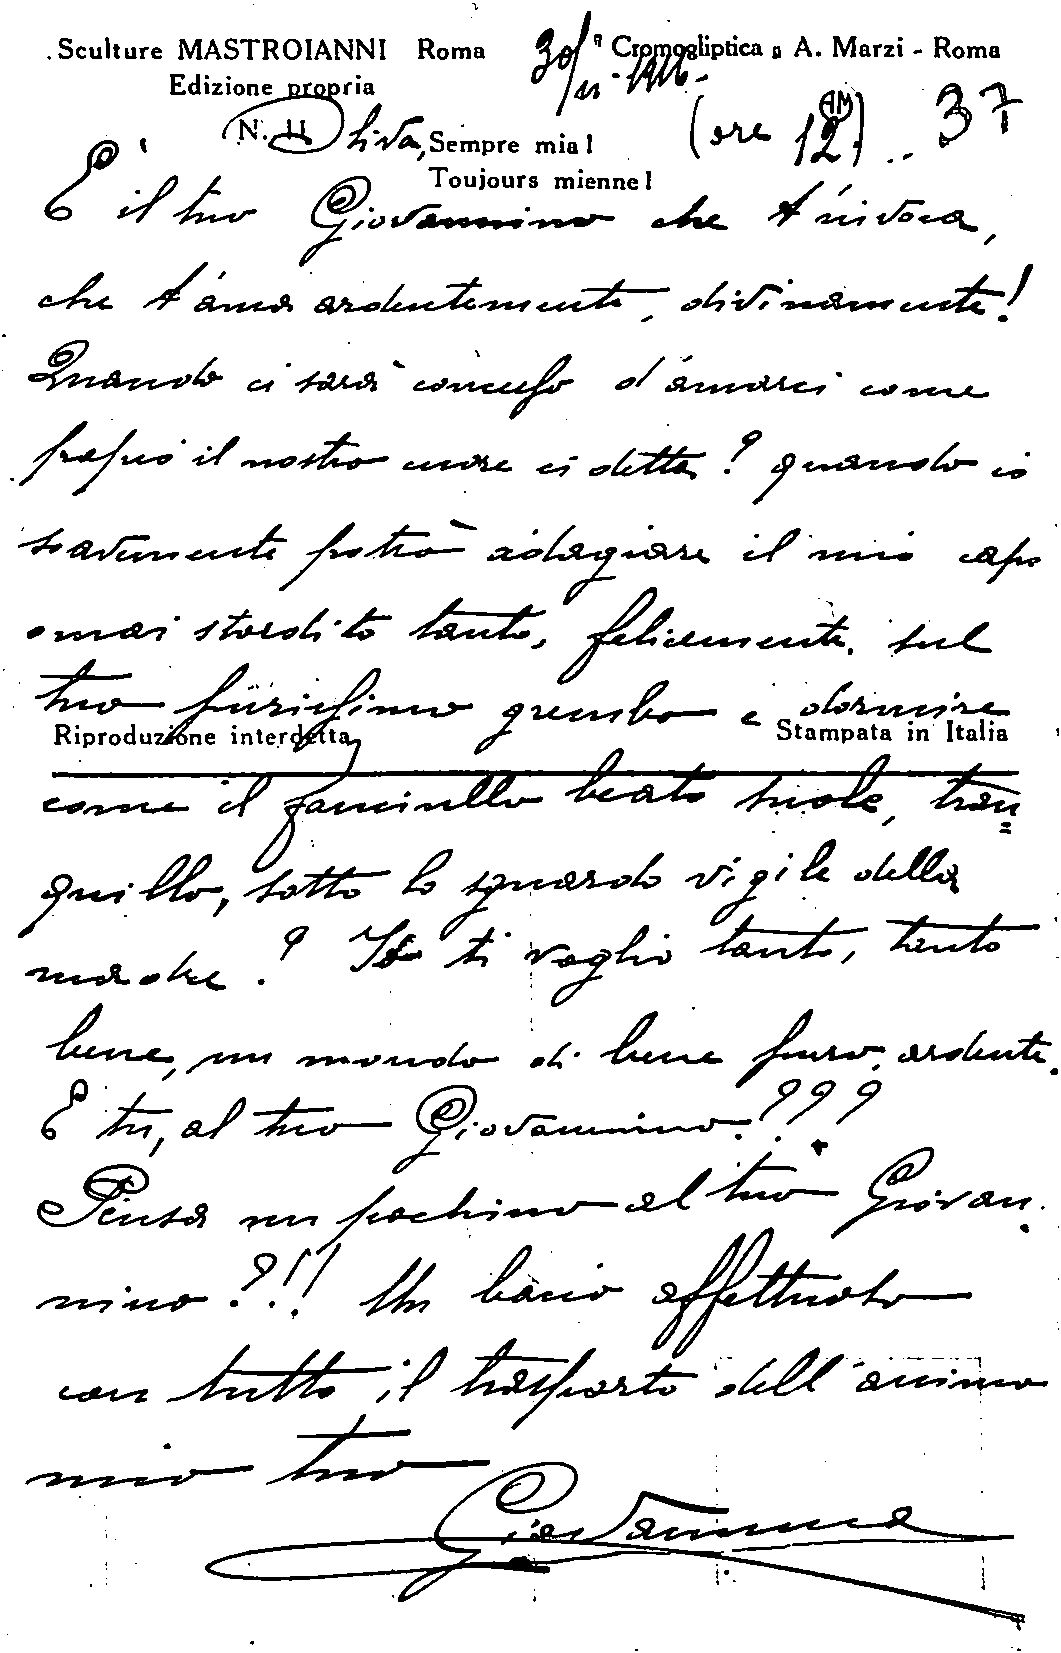 Sculture MASTROIANNI Roma 30/11-1916- Cromogliptica A. Marzi - Roma
Edizione propria
N. 11 Diva, Sempre mia! (ore 12 AM) .. 37
Toujours mienne!
E' il tuo Giovannino che t'invoca,
che t'ama ardentemente, divinamente!
Quando ci sarà concesso d'amarci come
proprio il nostro cuore ci detta? quando io
soavemente potrò adagiare il mio capo
omai stordito tanto, felicemente, sul
tuo purissimo grembo e dormire
Riproduzione interdetta Stampata in Italia
come il fanciullo beato suole, tran=
quillo, sotto lo sguardo vigile della
madre? Io ti voglio tanto, tanto
bene, un mondo di bene puro, ardente.
E tu, al tuo Giovannino???
Pensa un pochino al tuo Giovan.
nino?!! Un bacio affettuoso
con tutto il trasporto dell'animo
mio tuo
Giovannino